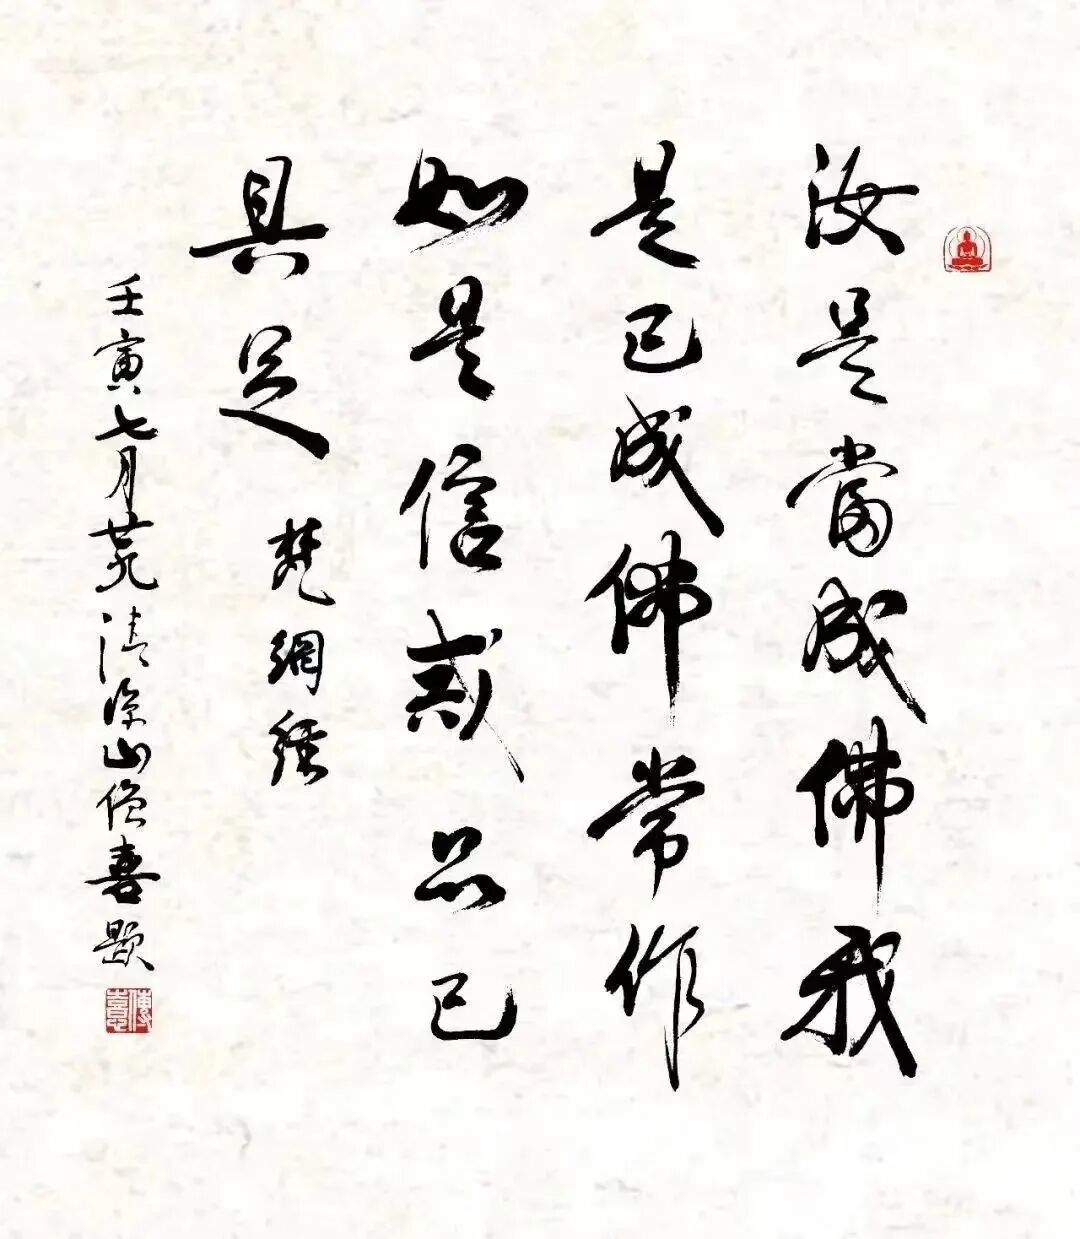 汝是當成佛我
是已成佛常作
如是信戒品已
具足 梵網經
壬寅七月廿九清凉山傳喜題
傳喜